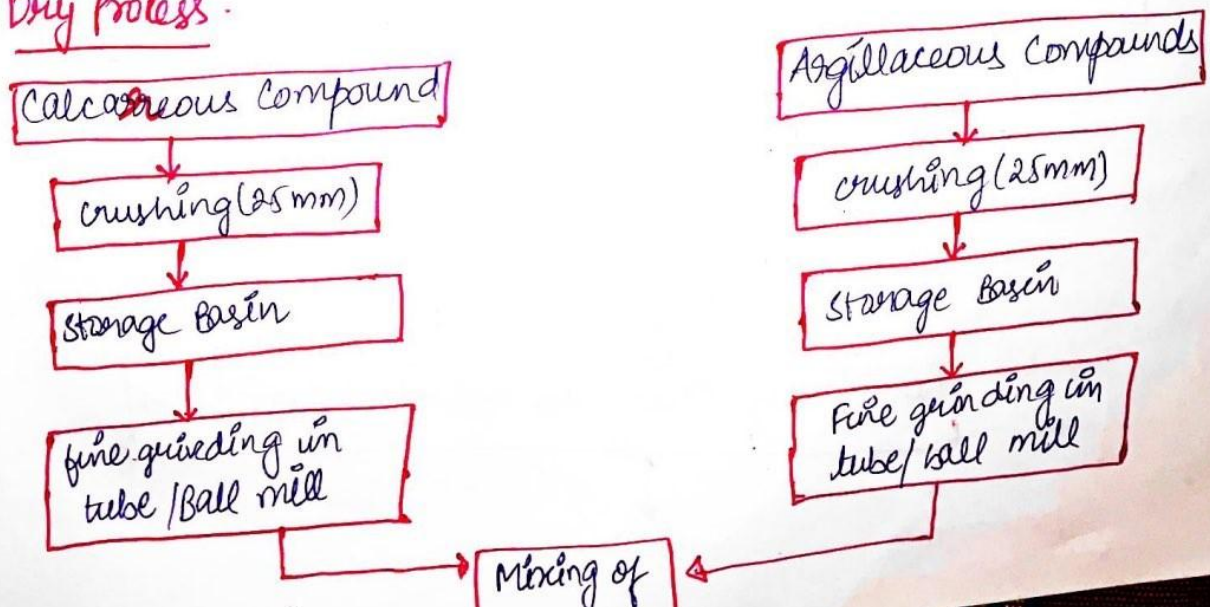 Dry Process.
Calcareous Compound
crushing (25mm)
Storage Basin
fine grineding in
tube / Ball mill
Argillaceous Compounds
crushing (25mm)
Storage Basin
Fine grinding in
tube / ball mill
Mixing of